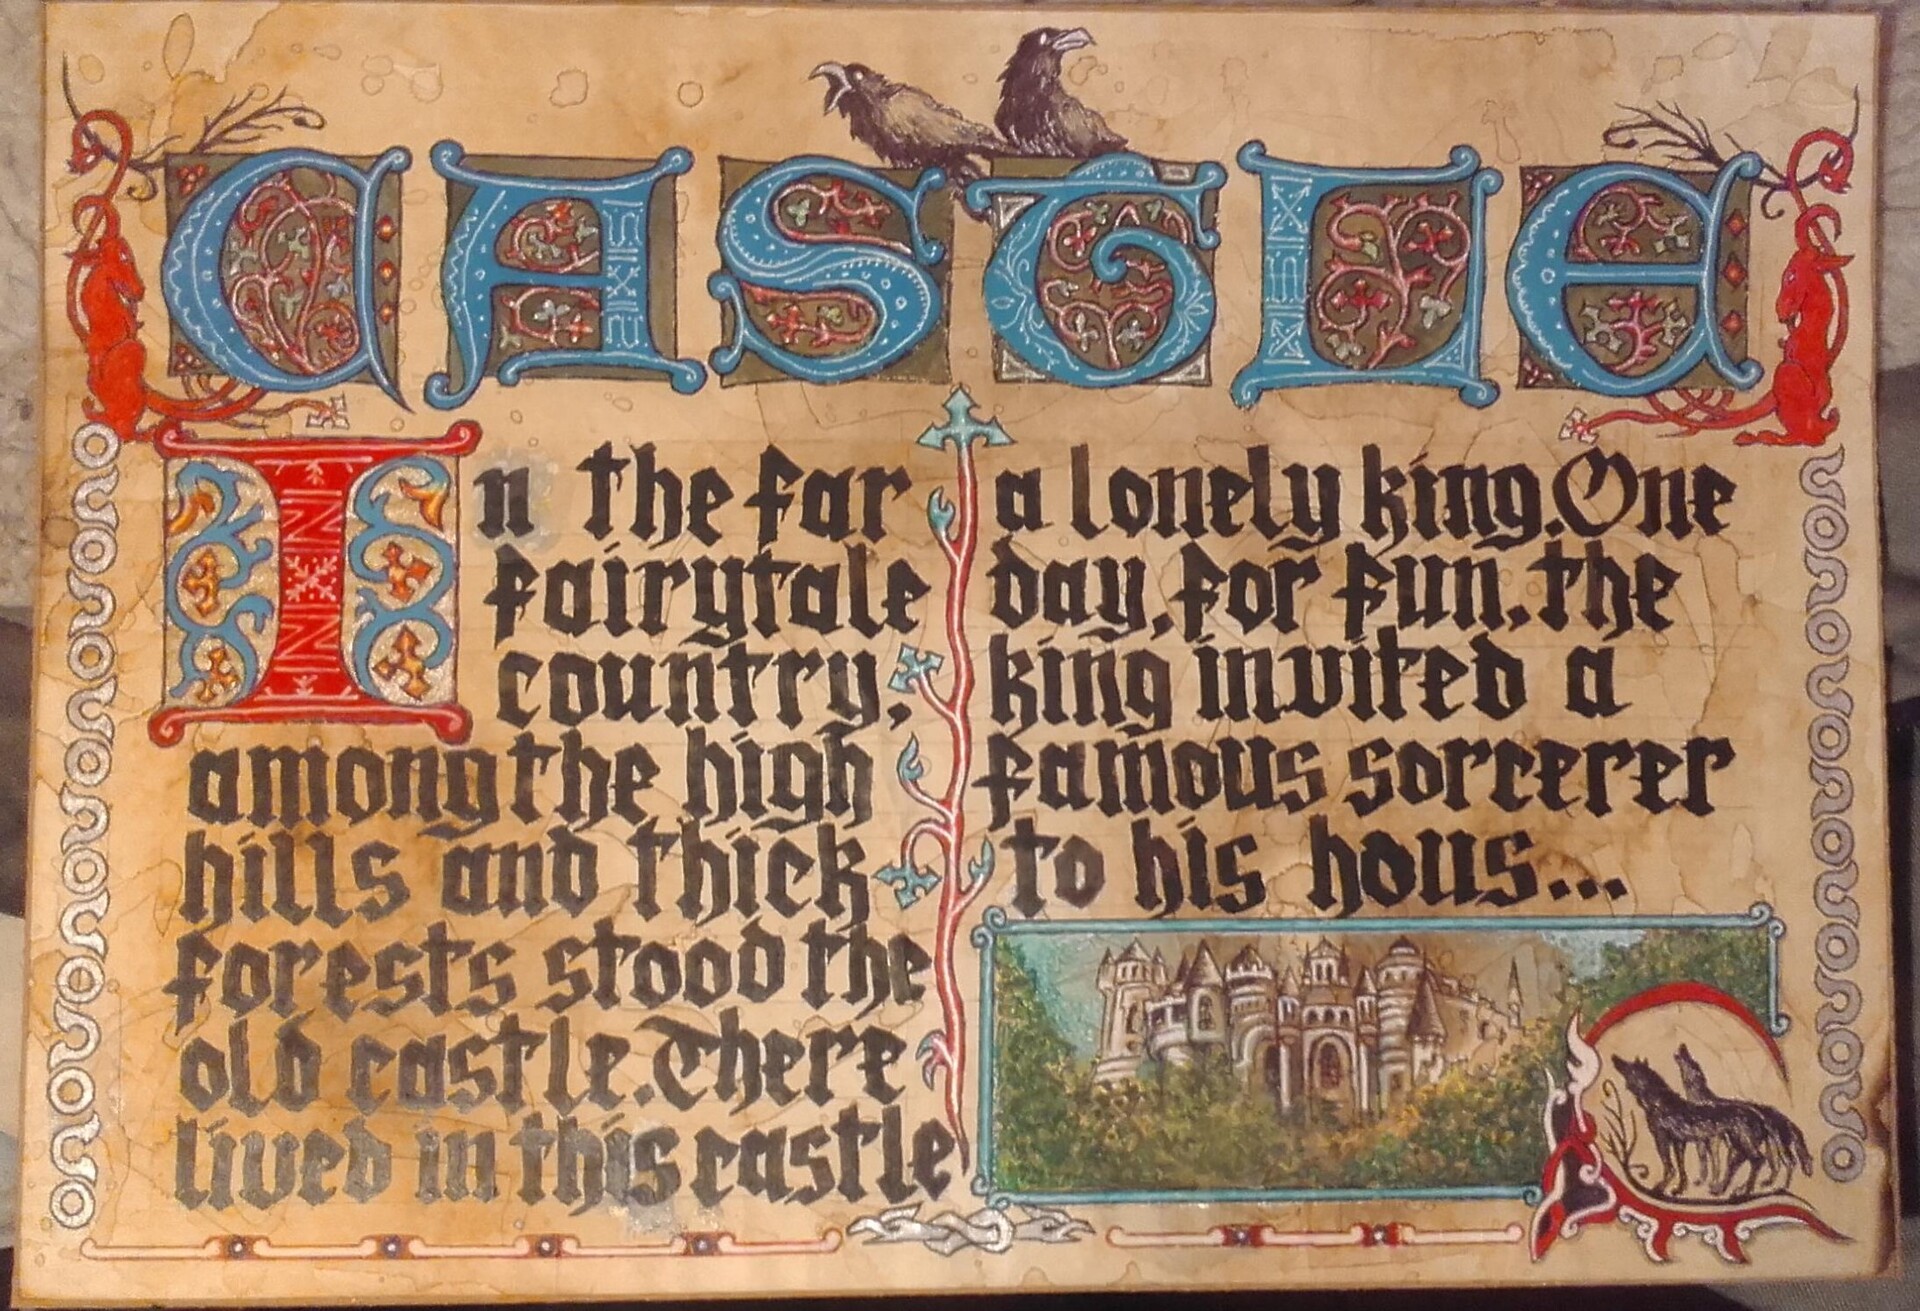 CASTLE
In the far
fairytale
country,
among the high
hills and thick
forests stood the
old castle. There
lived in this castle
a lonely king. One
day, for fun, the
king invited a
famous sorcerer
to his hous...